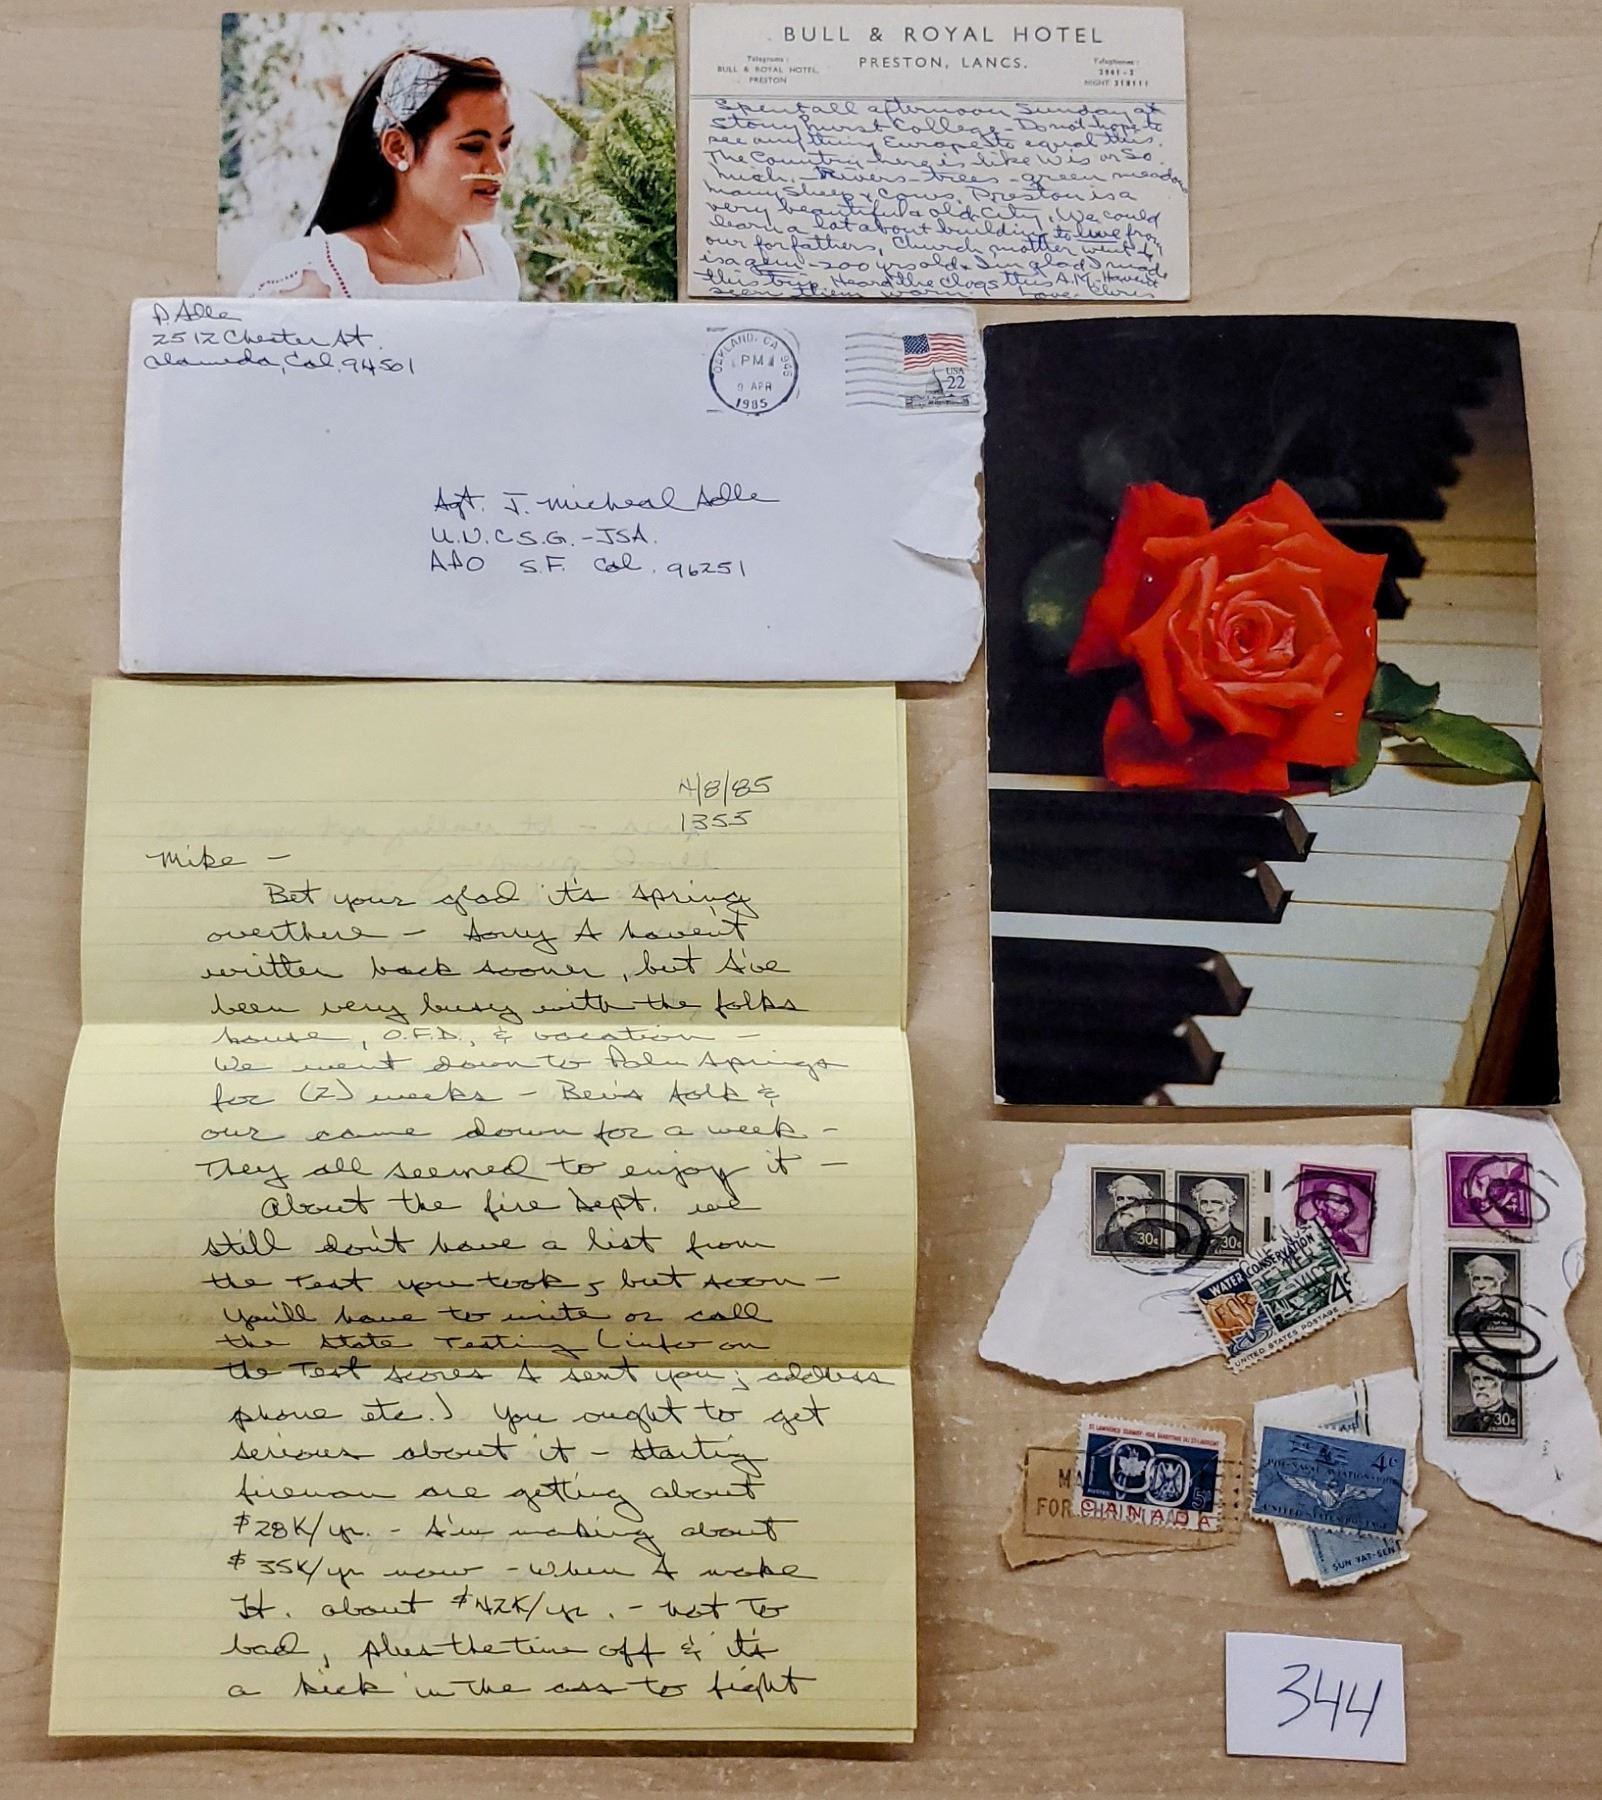 BULL & ROYAL HOTEL
PRESTON, LANCS.
Telegrams:
BULL & ROYAL HOTEL,
PRESTON
Telephones:
NIGHT
Spent all afternoon Sunday at
Stonyhurst College - Do not hope to
see anything Europe to equal this.
The Country here is like Wis or So.
Mich. - Rivers - trees - green meadows
many Sheep & Cows. Preston is a
very beautiful old City. We could
learn a lot about building to live from
our forfathers, Church, mother went to
is a gem - 200 yrs old & I'm glad I made
this trip. Heard the Clogs this A.M. Haven't
seen them worn. Love Chris
D. Adle
2512 Chester St.
Alameda, Cal. 94501
OAKLAND, CA 946
PM
9 APR
1985
USA
22
Sgt. J. Micheal Adle
U.N.C.S.G. - JSA.
APO S.F. Cal. 96251
4/8/85
1355
Mike -
Bet your glad it's spring
overthere - Sorry I haven't
written back sooner, but I've
been very busy with the folks
house, O.F.D., & vacation -
We went down to Palm Springs
for (2) weeks - Bev's folk &
our came down for a week -
They all seemed to enjoy it -
About the fire Dept. we
still don't have a list from
the Test you took, but soon -
You'll have to write or call
the State Testing (info on
the Test scores I sent you; address
phone etc.) You ought to get
serious about it - starting
fireman are getting about
$28K/yr. - I'm making about
$35K/yr now - When I make
Lt. about $42K/yr. - not To
bad, plus the time off & it's
a kick in the ass to fight
30¢
30¢
WATER CONSERVATION
4¢
UNITED STATES POSTAGE
30¢
ST. LAWRENCE SEAWAY
POSTES
5
CANADA
FOR
NAVAL AVIATION
4¢
UNITED STATES POSTAGE
SUN YAT-SEN
344